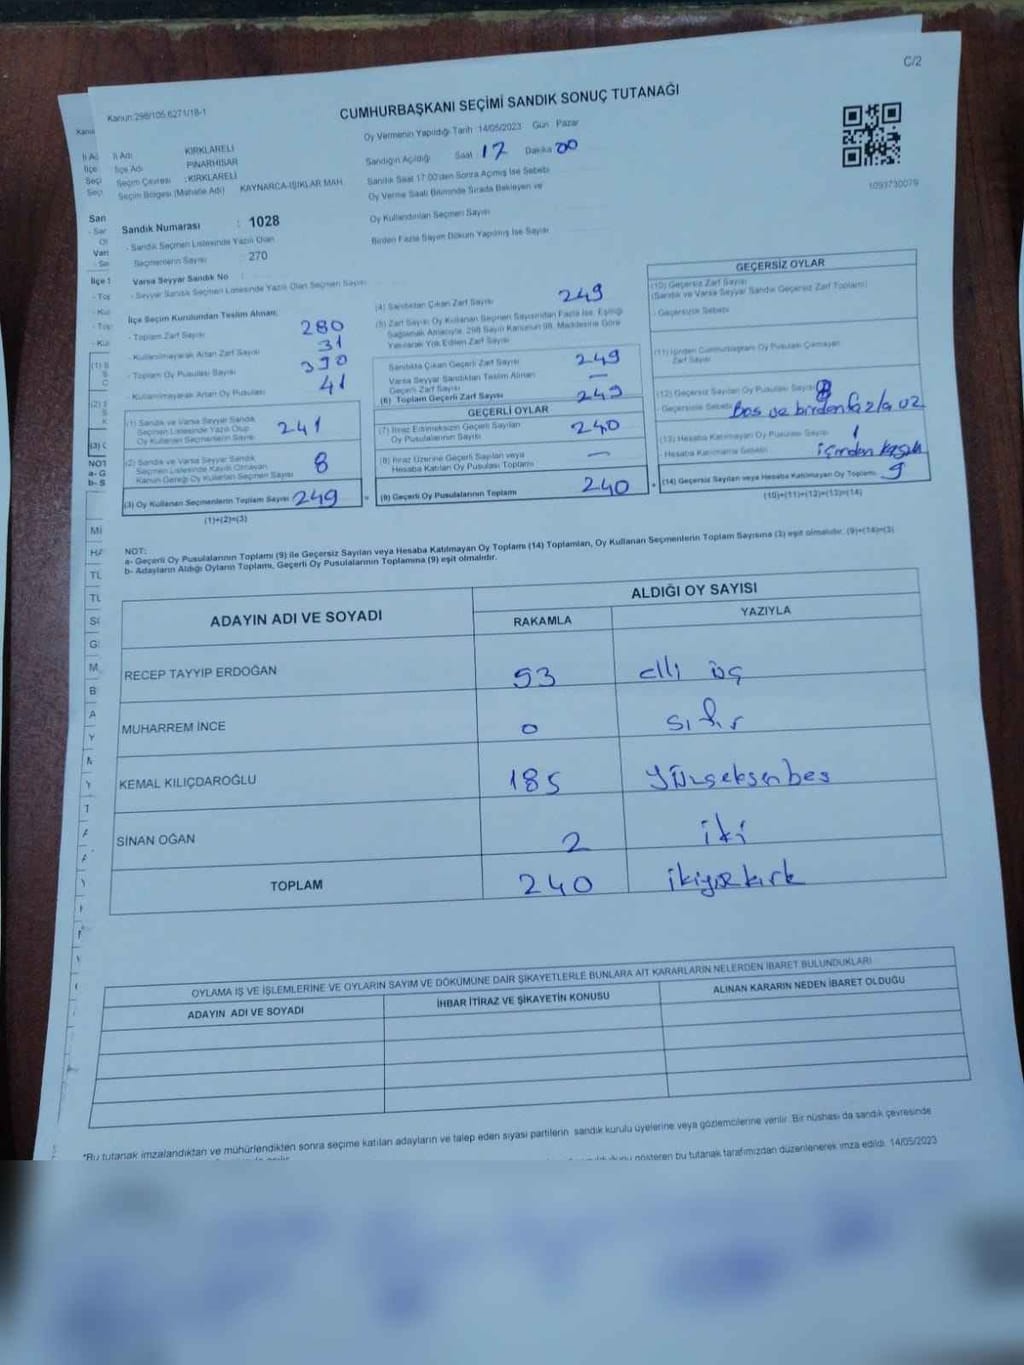 C/2
Kanun:298/105,6271/18-1
CUMHURBAŞKANI SEÇİMİ SANDIK SONUÇ TUTANAĞI
Oy Vermenin Yapıldığı Tarih :14/05/2023 Gün : Pazar
İl Adı : KIRKLARELİ
İlçe Adı : PINARHİSAR
Seçim Çevresi : KIRKLARELİ
Seçim Bölgesi (Mahalle Adı) : KAYNARCA-IŞIKLAR MAH.
Sandığın Açıldığı Saat 17 Dakika 00
Sandık Saat 17:00'den Sonra Açılmış İse Sebebi
Oy Verme Saati Bitiminde Sırada Bekleyen ve
Oy Kullandırılan Seçmen Sayısı
Birden Fazla Sayım Döküm Yapılmış İse Sayısı
1093730079
Sandık Numarası : 1028
- Sandık Seçmen Listesinde Yazılı Olan
Seçmenlerin Sayısı : 270
Varsa Seyyar Sandık No :
- Seyyar Sandık Seçmen Listesinde Yazılı Olan Seçmen Sayısı
İlçe Seçim Kurulundan Teslim Alınan;
- Toplam Zarf Sayısı 280
- Kullanılmayarak Artan Zarf Sayısı 31
- Toplam Oy Pusulası Sayısı
- Kullanılmayarak Artan Oy Pusulası 41
(1) Sandık ve Varsa Seyyar Sandık
Seçmen Listesinde Yazılı Olup
Oy Kullanan Seçmenlerin Sayısı 241
(2) Sandık ve Varsa Seyyar Sandık
Seçmen Listesinde Kayıtlı Olmayan
Kanun Gereği Oy Kullanan Seçmen Sayısı 8
(3) Oy Kullanan Seçmenlerin Toplam Sayısı 249
(1)+(2)=(3)
(4) Sandıktan Çıkan Zarf Sayısı 249
(5) Zarf Sayısı Oy Kullanan Seçmen Sayısından Fazla İse, Eşitliği
Sağlamak Amacıyla, 298 Sayılı Kanunun 98. Maddesine Göre
Yakılarak Yok Edilen Zarf Sayısı
Sandıkta Çıkan Geçerli Zarf Sayısı 249
Varsa Seyyar Sandıktan Teslim Alınan
Geçerli Zarf Sayısı —
(6) Toplam Geçerli Zarf Sayısı 249
GEÇERLİ OYLAR
(7) İtiraz Edilmeksizin Geçerli Sayılan
Oy Pusulalarının Sayısı 240
(8) İtiraz Üzerine Geçerli Sayılan veya
Hesaba Katılan Oy Pusulası Toplamı —
(9) Geçerli Oy Pusulalarının Toplamı 240
GEÇERSİZ OYLAR
(10) Geçersiz Zarf Sayısı
(Sandık ve Varsa Seyyar Sandık Geçersiz Zarf Toplamı)
- Geçersizlik Sebebi
(11) İçinden Cumhurbaşkanı Oy Pusulası Çıkmayan
Zarf Sayısı
(12) Geçersiz Sayılan Oy Pusulası Sayısı 8
- Geçersizlik Sebebi Boş ve birden fazla
(13) Hesaba Katılmayan Oy Pusulası Sayısı 1
Hesaba Katılmama Sebebi içinden
(14) Geçersiz Sayılan veya Hesaba Katılmayan Oy Toplamı 9
(10)+(11)+(12)+(13)=(14)
NOT:
a- Geçerli Oy Pusulalarının Toplamı (9) ile Geçersiz Sayılan veya Hesaba Katılmayan Oy Toplamı (14) Toplamları, Oy Kullanan Seçmenlerin Toplam Sayısına (3) eşit olmalıdır. (9)+(14)=(3)
b- Adayların Aldığı Oyların Toplamı, Geçerli Oy Pusulalarının Toplamına (9) eşit olmalıdır.
ADAYIN ADI VE SOYADI ALDIĞI OY SAYISI
RAKAMLA YAZIYLA
RECEP TAYYİP ERDOĞAN 53 elli üç
MUHARREM İNCE 0 sıfır
KEMAL KILIÇDAROĞLU 185 yüzseksenbeş
SİNAN OĞAN 2 iki
TOPLAM 240 ikiyüzkırk
OYLAMA İŞ VE İŞLEMLERİNE VE OYLARIN SAYIM VE DÖKÜMÜNE DAİR ŞİKAYETLERLE BUNLARA AİT KARARLARIN NELERDEN İBARET BULUNDUKLARI
ADAYIN ADI VE SOYADI İHBAR İTİRAZ VE ŞİKAYETİN KONUSU ALINAN KARARIN NEDEN İBARET OLDUĞU
*Bu tutanak imzalandıktan ve mühürlendikten sonra seçime katılan adayların ve talep eden siyasi partilerin sandık kurulu üyelerine veya gözlemcilerine verilir. Bir nüshası da sandık çevresinde
gösteren bu tutanak tarafımızdan düzenlenerek imza edildi. 14/05/2023